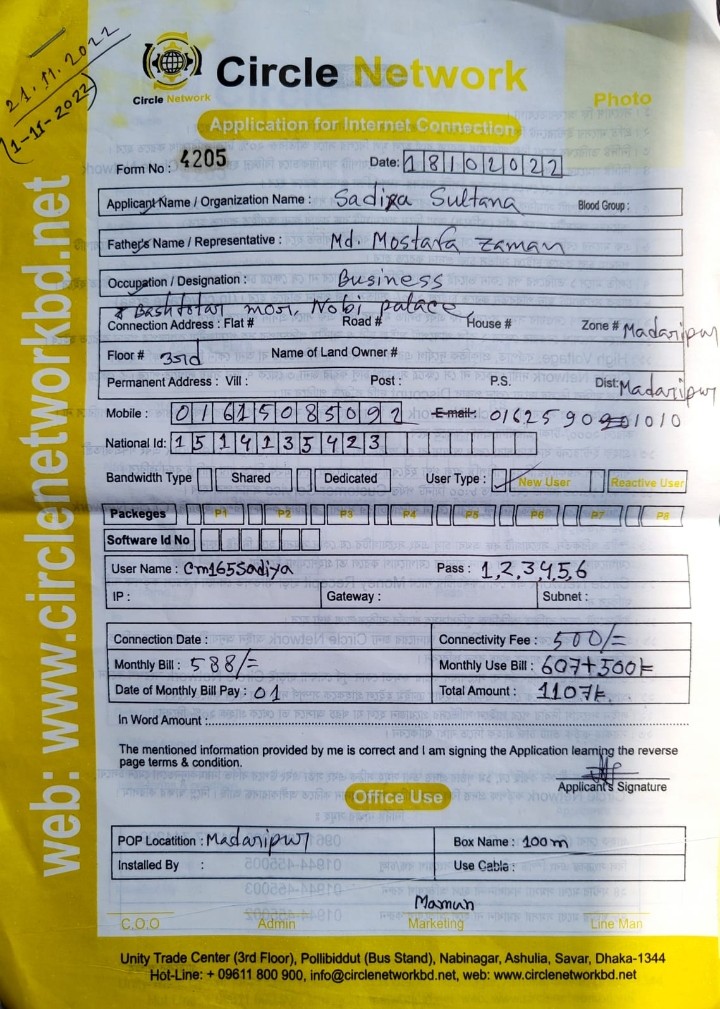 21.11.2022
(1-11-2022)
Circle Network
Circle Network
Photo
Application for Internet Connection
Form No : 4205
Date: 18102022
Applicant Name / Organization Name : Sadiya Sultana Blood Group :
Father's Name / Representative : Md. Mostafa Zaman
Occupation / Designation : Business
mor, Nobi palace
Connection Address : Flat # Road # House # Zone # Madaripur
Floor # 3rd Name of Land Owner #
Permanent Address : Vill : Post : P.S. Dist: Madaripur
Mobile : 01615085092 E-mail: 01625 90 01010
National Id: 1514135423
Bandwidth Type Shared Dedicated User Type : New User Reactive User
Packeges P1 P2 P3 P4 P5 P6 P7 P8
Software Id No
User Name : Cm165Sadiya Pass : 1,2,3,4,5,6
IP : Gateway : Subnet :
Connection Date : Connectivity Fee : 500/=
Monthly Bill : 588/= Monthly Use Bill : 607+500/=
Date of Monthly Bill Pay : 01 Total Amount : 1107/=
In Word Amount :
The mentioned information provided by me is correct and I am signing the Application learning the reverse
page terms & condition.
Applicant's Signature
Office Use
POP Locatition : Madaripur Box Name : 100m
Installed By : Use Cable :
Mamun
C.O.O Admin Marketing Line Man
Unity Trade Center (3rd Floor), Pollibiddut (Bus Stand), Nabinagar, Ashulia, Savar, Dhaka-1344
Hot-Line: + 09611 800 900, info@circlenetworkbd.net, web: www.circlenetworkbd.net
web: www.circlenetworkbd.net